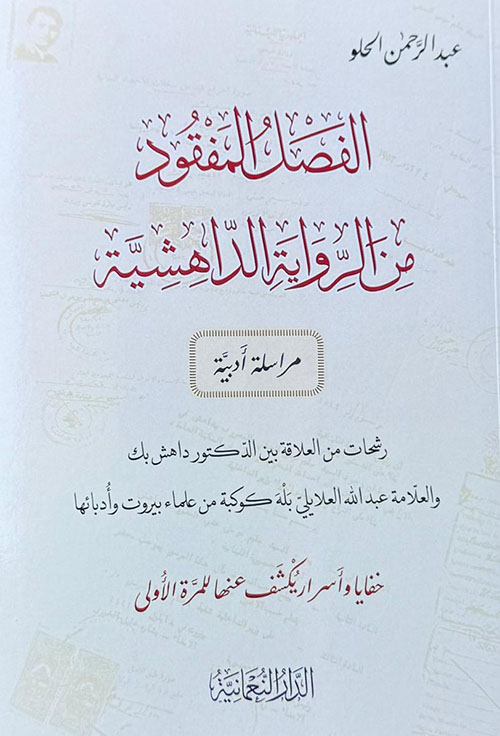 عبد الرَّحمٰن الحلو
الفَصْلُ المَفْقُود
مِنَ الرِّوَايَةِ الدَّاهِشِيَّة
مراسلة أدبيَّة
رشحات من العلاقة بين الدّكتور داهش بك
والعلّامة عبد الله العلايليّ بَلْهَ كوكبة من علماء بيروت وأُدبائها
خفايا وأسرار يُكْشَف عنها للمرّة الأُولى
الدَّارُ النُّعْمَانِيَّة